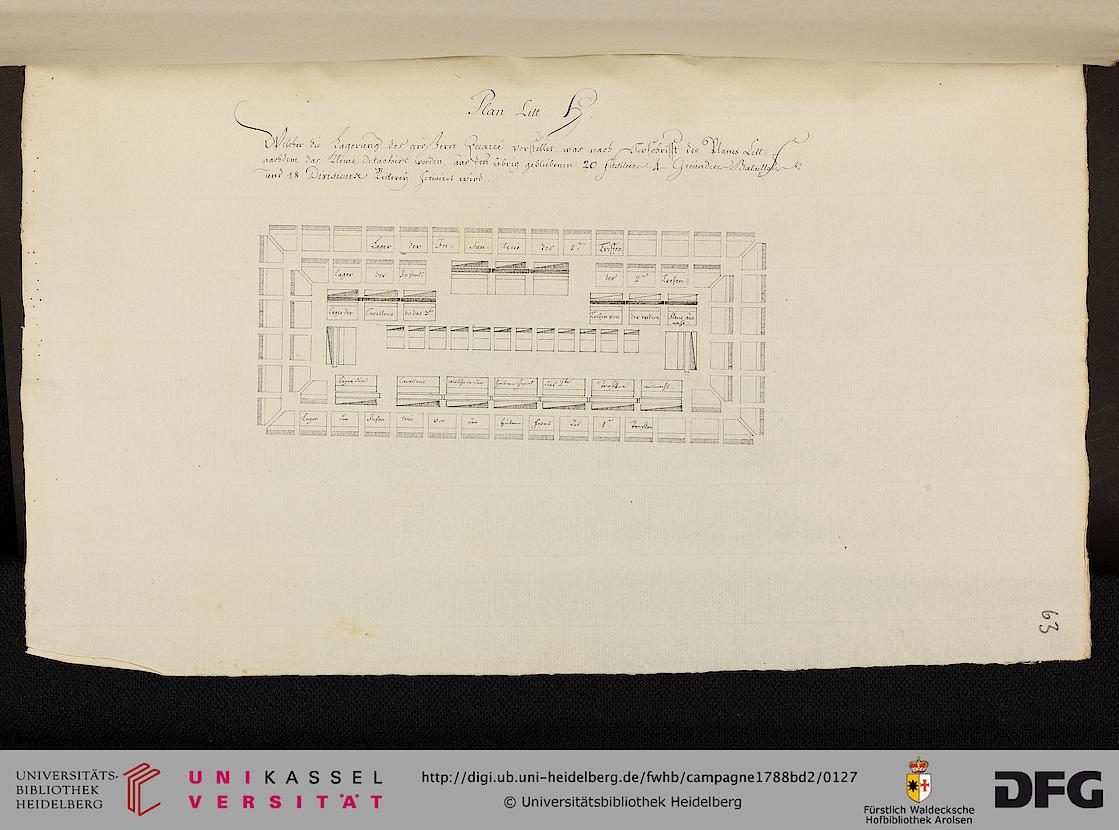 Plan Litt H.
Welcher die Lagerung des größern Quarré vorstellet, was nach Vorschrifft des Planes Litt:
nachdem das kleine detachirt worden, aus den übrig gebliebenen 20 Fusilier 4 Grenadier Bataillons
und 18 Divisions Reuterey formiret wird.
Lager der In- fan- terie des 1ten Treffen
Lager der Infant: der 2ten Treffen
Lager der Cavallerie die das 3te
Treffen von der vordern Face aus macht
Lager der Cavallerie welche in der hintern Front das 2te Treffen ausmacht
Lager der Infan terie von der hintern Front des 1ten Treffen
63
UNIVERSITÄTS-
BIBLIOTHEK
HEIDELBERG
UNIKASSEL
VERSITÄT
http://digi.ub.uni-heidelberg.de/fwhb/campagne1788bd2/0127
© Universitätsbibliothek Heidelberg
Fürstlich Waldecksche
Hofbibliothek Arolsen
DFG